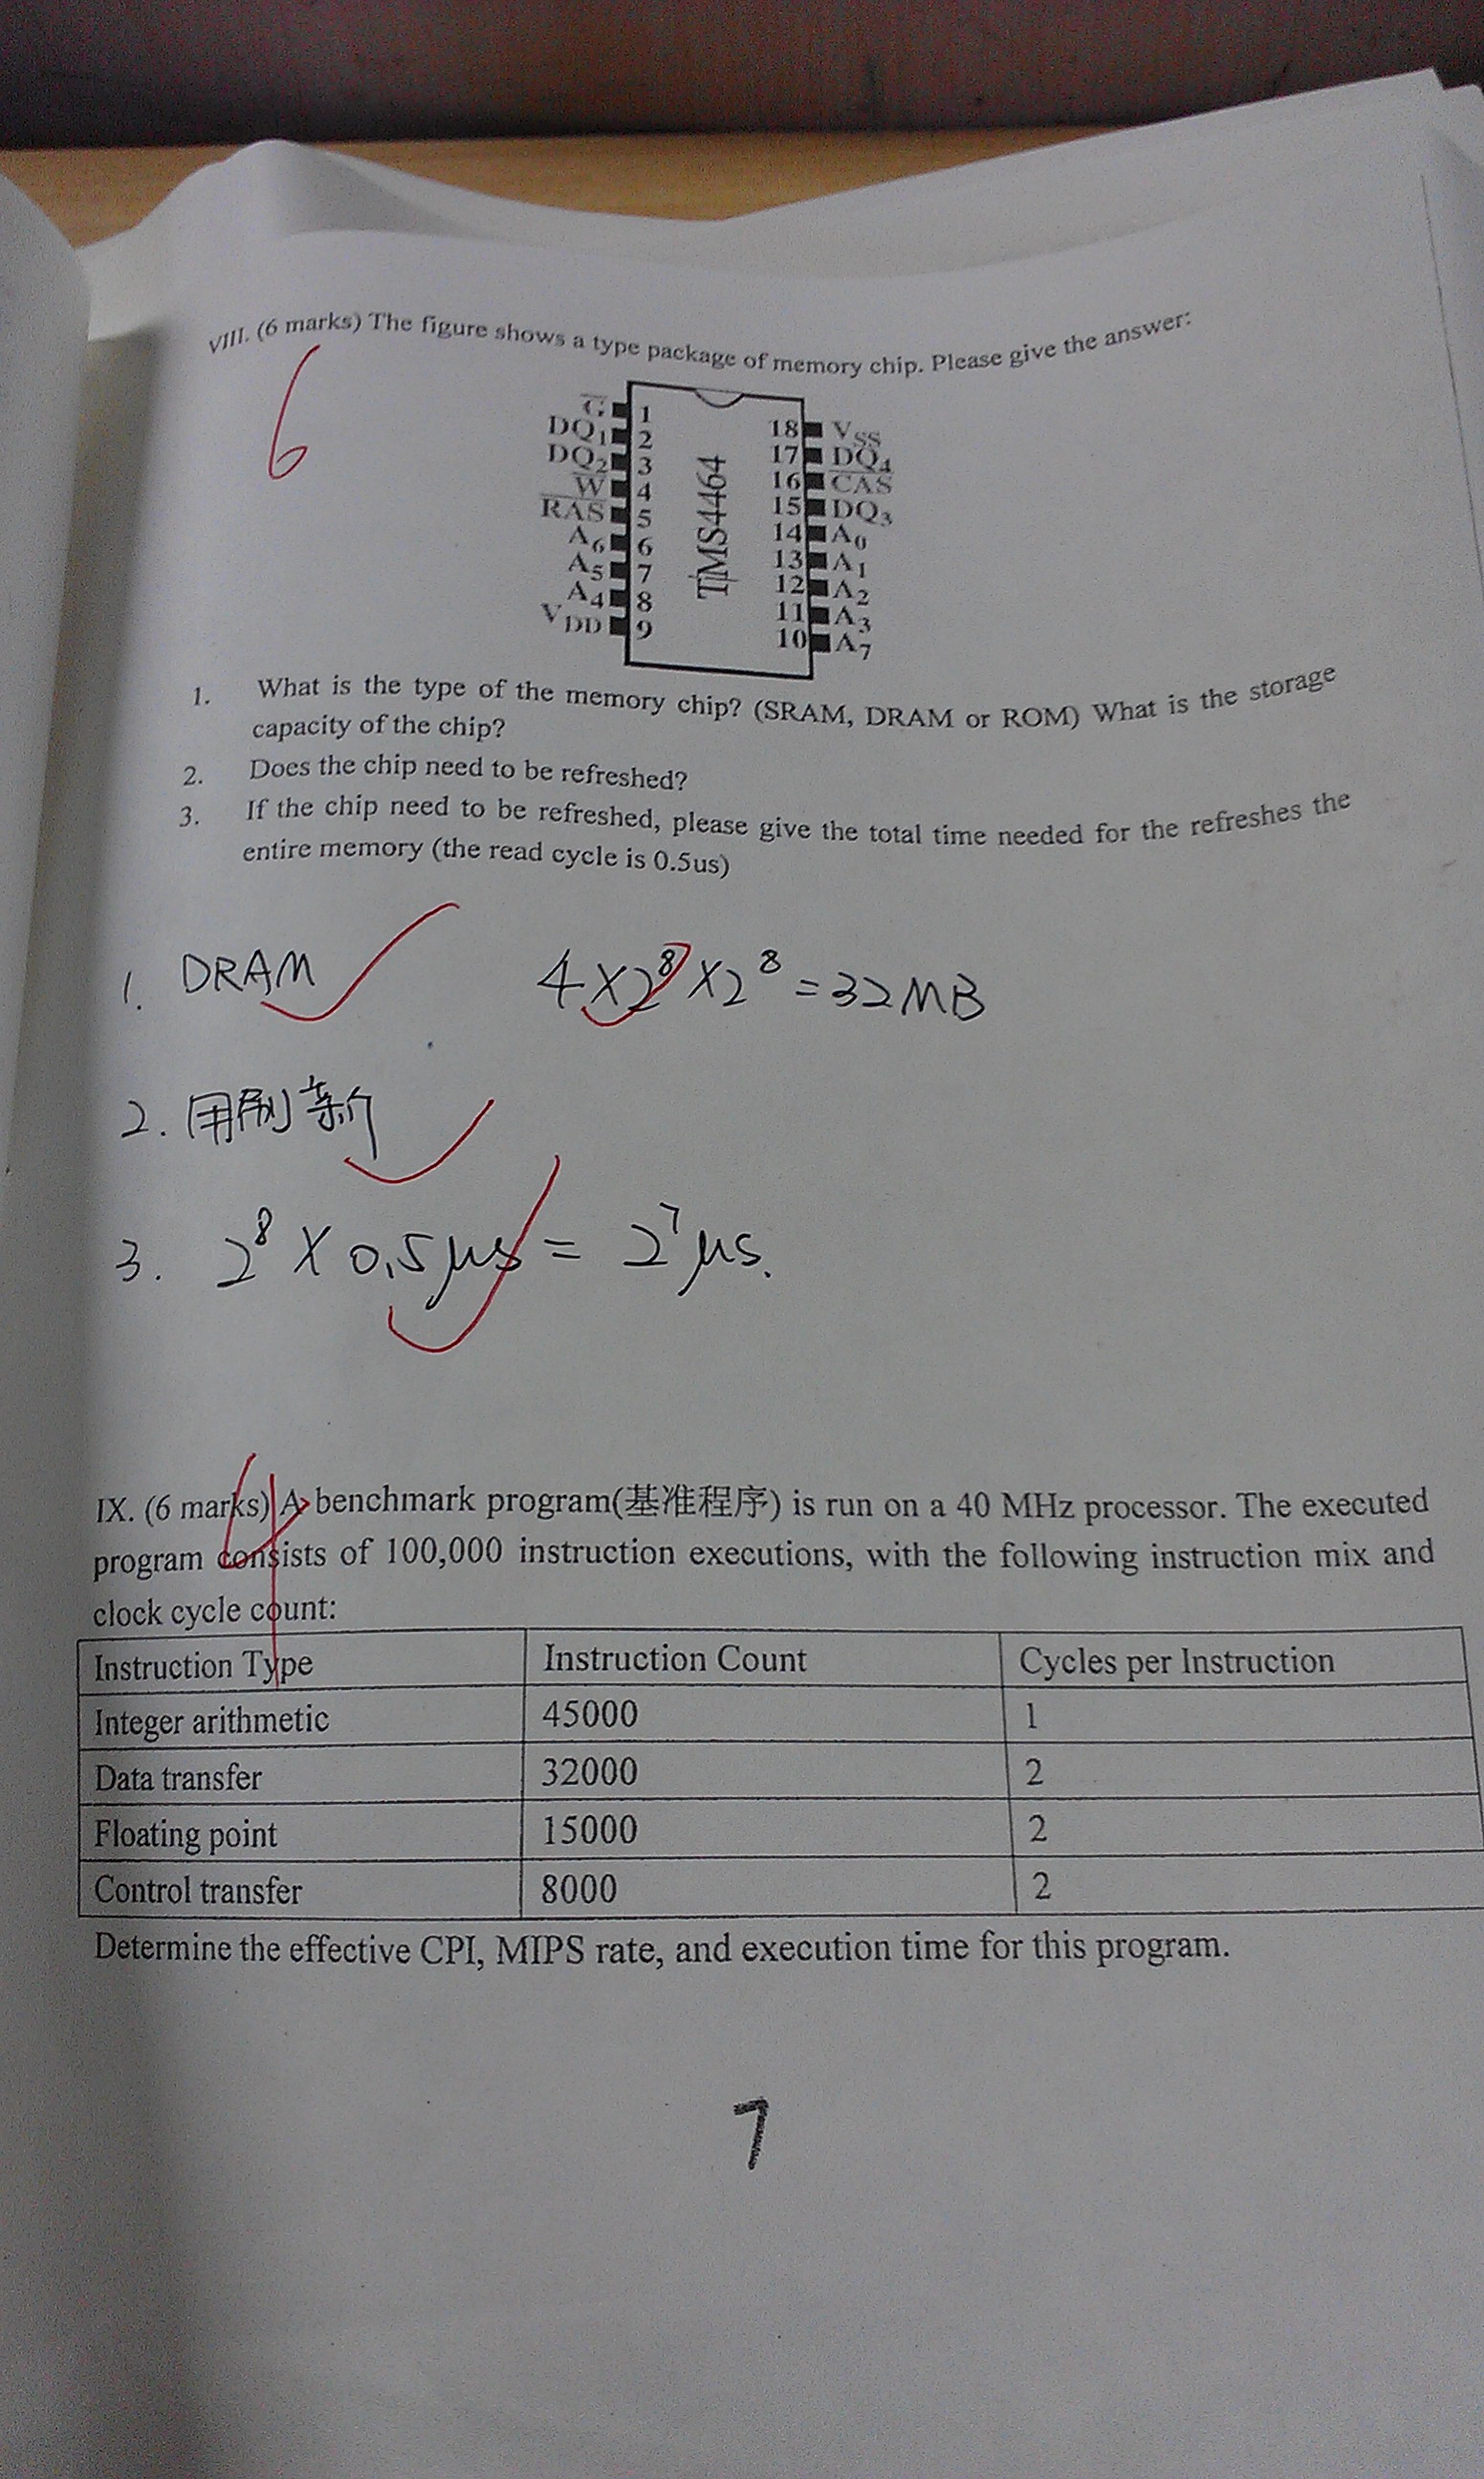 VIII. (6 marks) The figure shows a type package of memory chip. Please give the answer:
6
G 1 18 VSS
DQ1 2 17 DQ4
DQ2 3 16 CAS
W 4 15 DQ3
RAS 5 14 A0
A6 6 13 A1
A5 7 12 A2
A4 8 11 A3
VDD 9 10 A7
TMS4464
1. What is the type of the memory chip? (SRAM, DRAM or ROM) What is the storage
capacity of the chip?
2. Does the chip need to be refreshed?
3. If the chip need to be refreshed, please give the total time needed for the refreshes the
entire memory (the read cycle is 0.5us)
1. DRAM 4×2⁸×2⁸=32MB
2. 用刷新
3. 2⁸×0.5μs = 2⁷μs.
IX. (6 marks) A benchmark program(基准程序) is run on a 40 MHz processor. The executed
program consists of 100,000 instruction executions, with the following instruction mix and
clock cycle count:
4
Instruction Type Instruction Count Cycles per Instruction
Integer arithmetic 45000 1
Data transfer 32000 2
Floating point 15000 2
Control transfer 8000 2
Determine the effective CPI, MIPS rate, and execution time for this program.
7